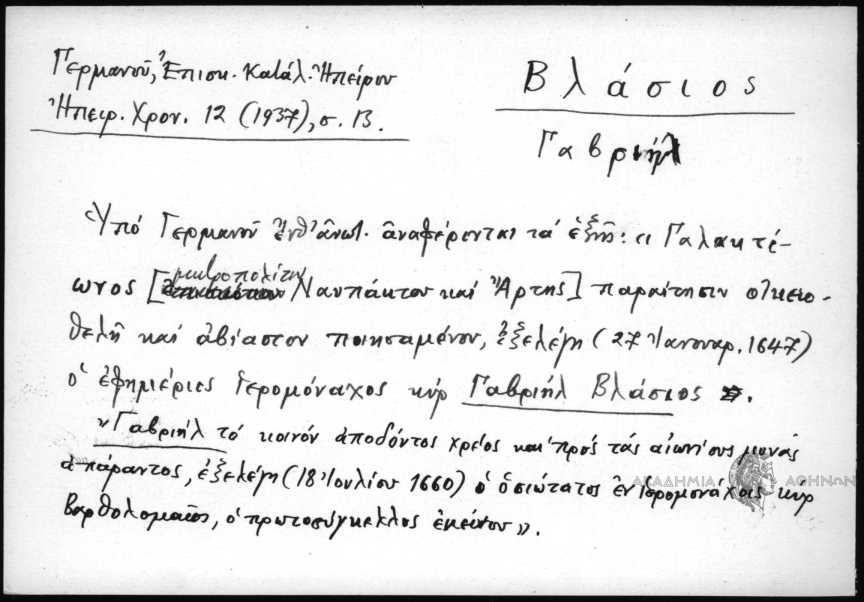 Γερμανοῦ, Ἐπισκ. Κατάλ. Ἠπείρου
Ἠπειρ. Χρον. 12 (1937), σ. 13.
Βλάσιος
Γαβριήλ
Ὑπό Γερμανοῦ ἔνθ' ἄνωτ. ἀναφέρονται τά ἑξῆς: «Γαλακτέ-
ωνος [μητροπολίτου Ναυπάκτου καί Ἄρτης] παραίτησιν οἰκειο-
θελῆ καί ἀβίαστον ποιησαμένου, ἐξελέγη (27 Ἰανουαρ. 1647)
ὁ ἐφημέριος ἱερομόναχος κύρ Γαβριήλ Βλάσιος.
»Γαβριήλ τό κοινόν ἀποδόντος χρέος καί πρός τάς αἰωνίους μονάς
ἀπάραντος, ἐξελέγη (18 Ἰουλίου 1660) ὁ ὁσιώτατος ἐν ἱερομονάχοις κύρ
Βαρθολομαῖος, ὁ πρωτοσύγκελλος ἐκείνου».
ΑΚΑΔΗΜΙΑ ΑΘΗΝΩΝ